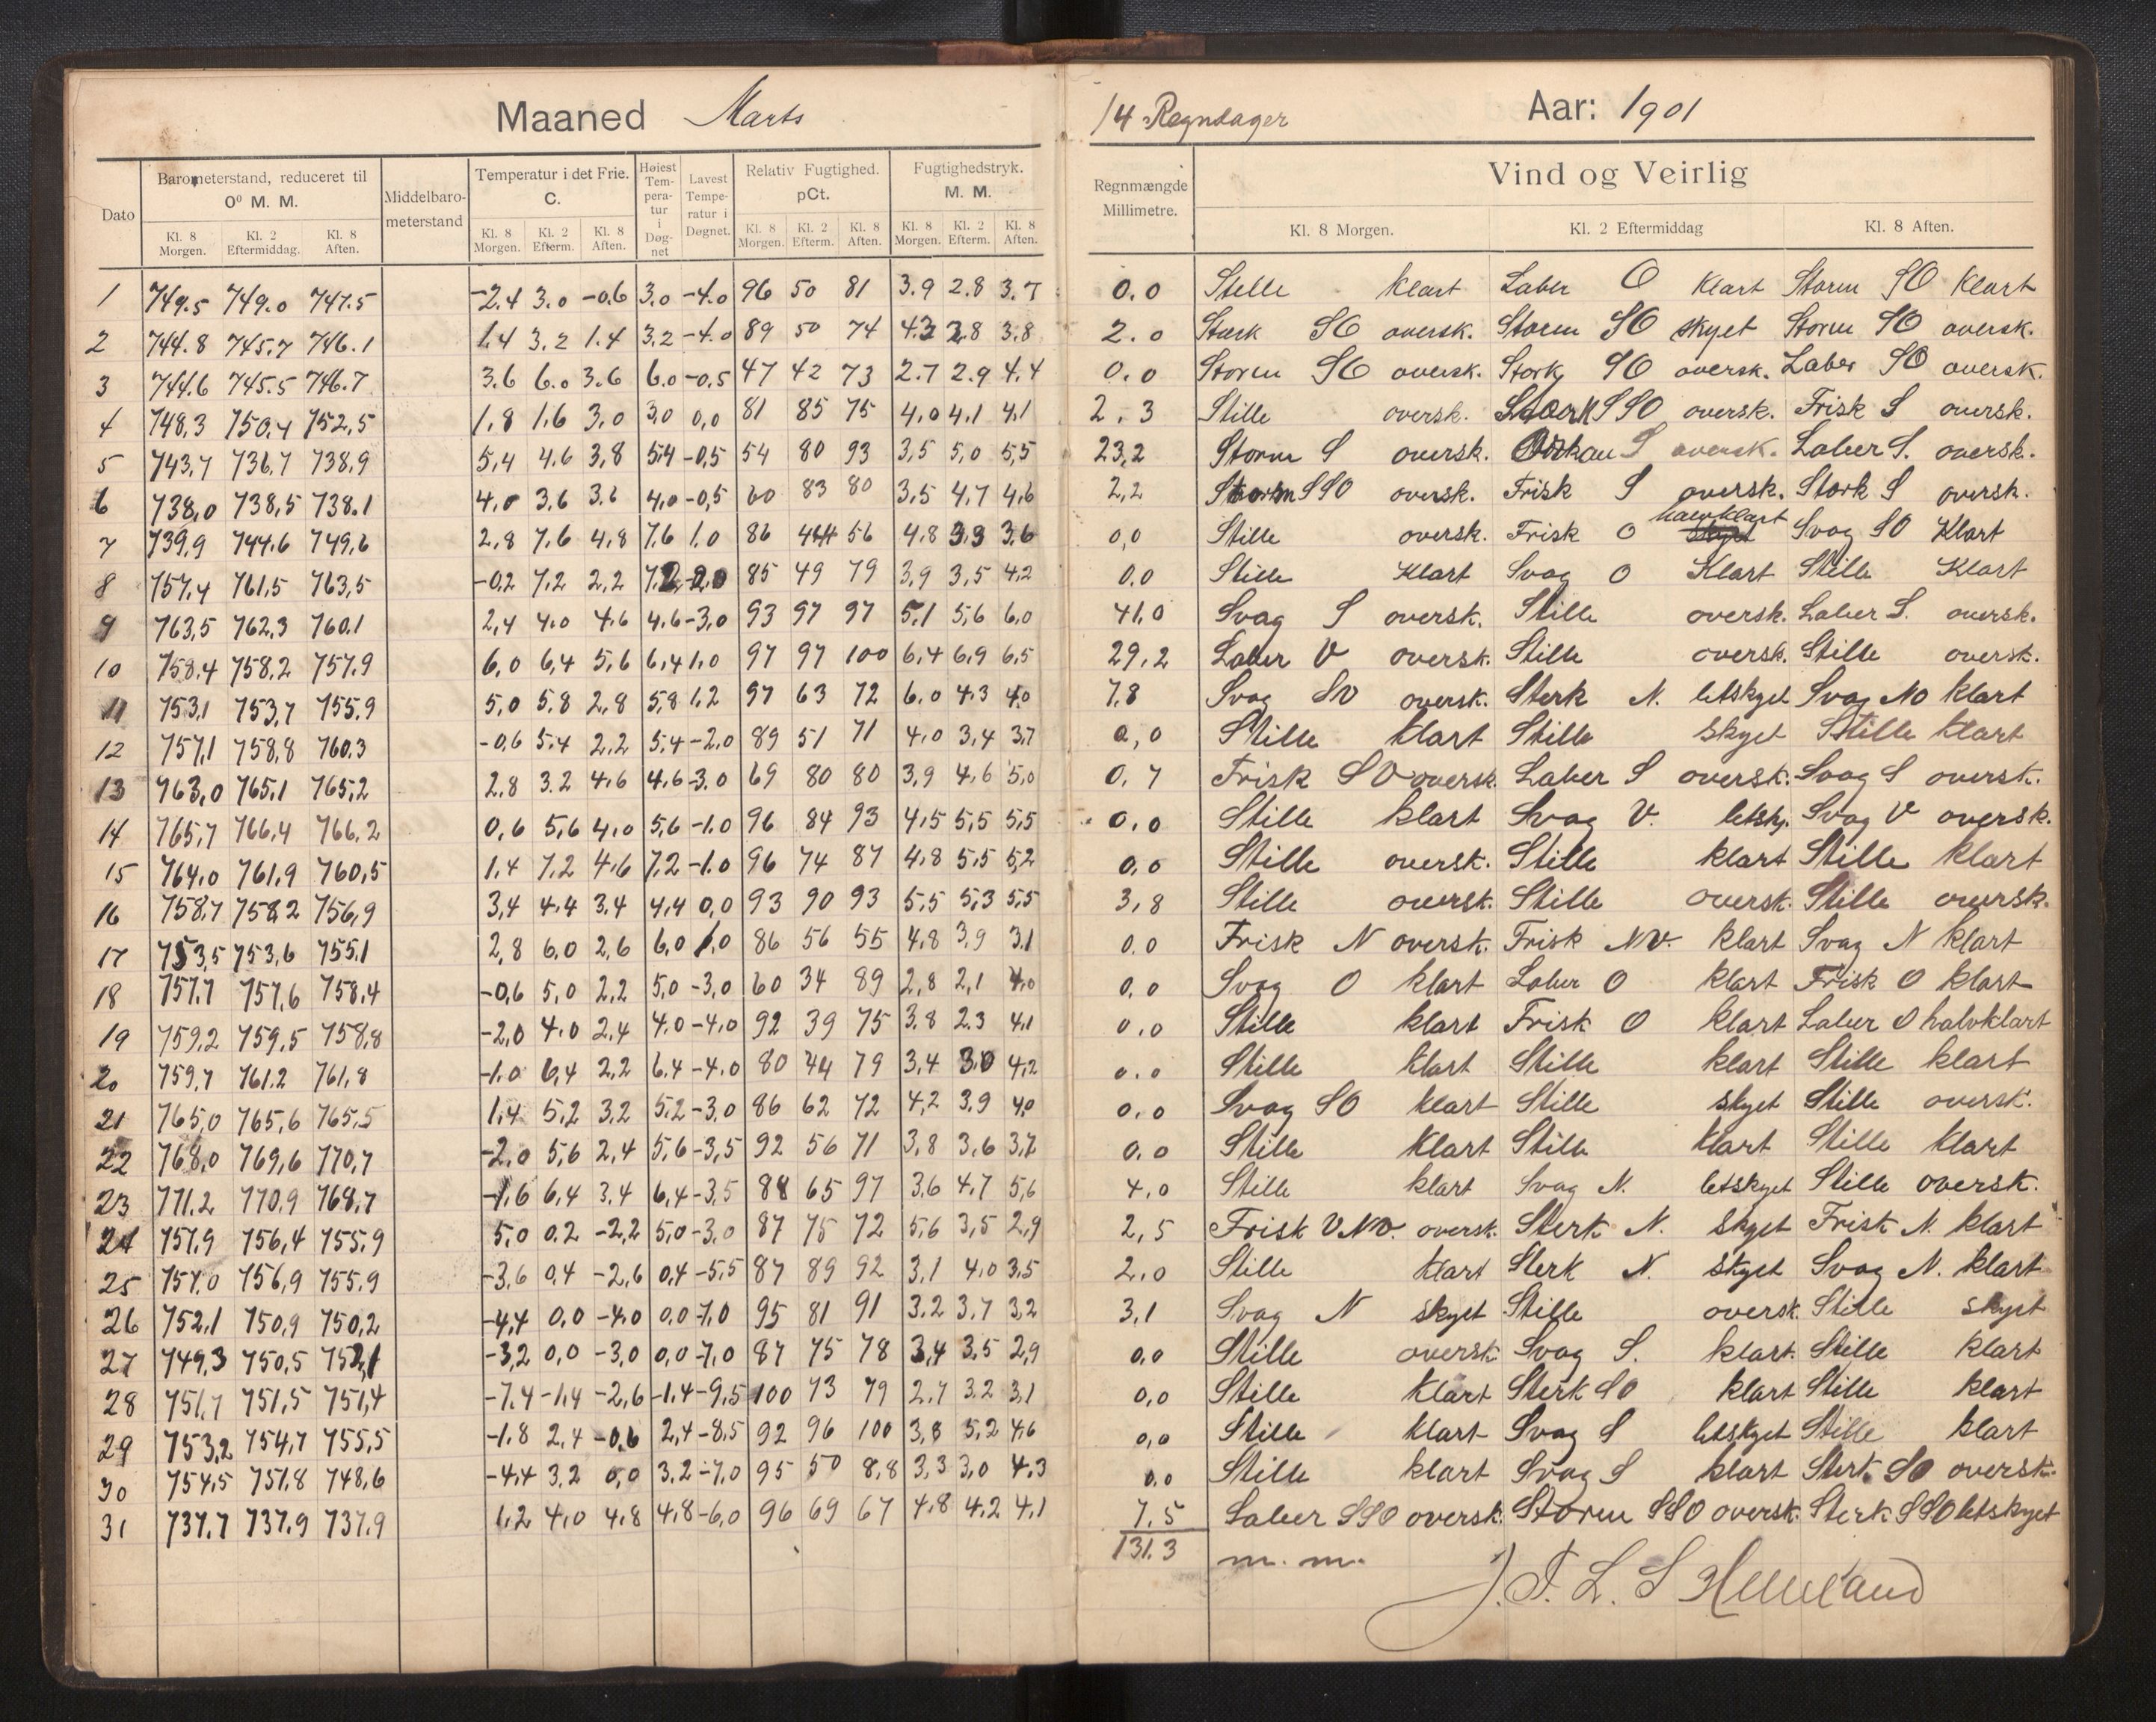 Maaned Marts 14 Regndager Aar: 1901
Dato Barometerstand, reduceret til 0⁰ M. M. Middelbaro-meterstand Temperatur i det Frie. C. Høiest Tem-pera-tur i Døg-net Lavest Tempe-ratur i Døgnet. Relativ Fugtighed. pCt. Fugtighedstryk. M. M. Regnmængde Millimetre. Vind og Veirlig
Kl. 8 Morgen. Kl. 2 Eftermiddag. Kl. 8 Aften. Kl. 8 Morgen. Kl. 2 Efterm. Kl. 8 Aften. Kl. 8 Morgen. Kl. 2 Efterm. Kl. 8 Aften. Kl. 8 Morgen. Kl. 2 Efterm. Kl. 8 Aften. Kl. 8 Morgen. Kl. 2 Eftermiddag Kl. 8 Aften.
1 749.5 749.0 747.5 -2.4 3.0 -0.6 3.0 -4.0 96 50 81 3.9 2.8 3.7 0.0 Stille klart Laber O klart Storm SO klart
2 744.8 745.7 746.1 1.4 3.2 1.4 3.2 -4.0 89 50 74 4.3 2.8 3.8 2.0 Stærk SO oversk. Storm SO skyet Storm SO oversk.
3 744.6 745.5 746.7 3.6 6.0 3.6 6.0 -0.5 47 42 73 2.7 2.9 4.4 0.0 Storm SO oversk. Stærk SO oversk. Laber SO oversk.
4 748,3 750,4 752,5 1,8 1,6 3,0 3,0 0,0 81 85 75 4,0 4,1 4,1 2.3 Stille oversk. SSO oversk. Frisk S oversk.
5 743,7 736,7 738,9 5,4 4,6 3,8 5,4 -0,5 54 80 93 3,5 5,0 5,5 23,2 Storm S oversk. Orkan S oversk. Laber S. oversk.
6 738,0 738,5 738.1 4,0 3,6 3,6 4,0 -0,5 60 83 80 3,5 4,7 4,6 2,2 Storm SSO oversk. Frisk S oversk. Stærk S oversk.
7 739,9 744,6 749,6 2,8 7,6 4,8 7,6 1,0 86 44 56 4,8 3,3 3,6 0,0 Stille oversk. Frisk O halvklart Svag SO Klart
8 757,4 761,5 763,5 -0,2 7,2 2,2 7,2 -2,0 85 49 79 3,9 3,5 4,2 0.0 Stille Klart Svag O Klart Stille Klart
9 763,5 762,3 760.1 2,4 4.0 4.6 4.6 -3,0 93 97 97 5,1 5,6 6,0 41,0 Svag S oversk. Stille oversk. Laber S. oversk.
10 758,4 758,2 757,9 6,0 6,4 5,6 6,4 1,0 97 97 100 6,4 6,9 6,5 29,2 Laber V oversk. Stille oversk. Stille oversk.
11 753,1 753,7 755,9 5,0 5,8 2,8 5,8 1,2 97 63 72 6,0 4,3 4,0 7,8 Svag SV oversk. Sterk N. letskyet Svag NO klart
12 757,1 758,8 760.3 -0,6 5.4 2,2 5,4 -2,0 89 51 71 4,0 3,4 3,7 0,0 Stille klart Stille skyet Stille klart
13 763,0 765,1 765,2 2,8 3.2 4,6 4,6 -3.0 69 80 80 3,9 4,6 5,0 0,7 Frisk SV oversk. Laber S oversk. Svag S oversk.
14 765,7 766,4 766,2 0,6 5,6 4,0 5,6 -1.0 96 84 93 4,5 5,5 5,5 0,0 Stille klart Svag V. letsky. Svag V oversk.
15 764,0 761,9 760,5 1,4 7,2 4,6 7,2 -1.0 96 74 87 4,8 5,5 5,2 0,0 Stille oversk. Stille klart Stille klart
16 758,7 758,2 756,9 3,4 4,4 3,4 4,4 0,0 93 90 93 5,5 5,3 5,5 3,8 Stille oversk. Stille oversk. Stille oversk.
17 753,5 753,6 755,1 2,8 6,0 2,6 6,0 1,0 86 56 55 4,8 3,9 3,1 0.0 Frisk N oversk. Frisk NV. klart Svag N klart
18 757,7 757,6 758,4 -0,6 5,0 2,2 5,0 -3,0 60 34 89 2,8 2,1 4,0 0,0 Svag O klart Laber O klart Frisk O klart
19 759,2 759,5 758,8 -2,0 4,0 2,4 4,0 -4,0 92 39 75 3,8 2,3 4,1 0,0 Stille klart Frisk O klart Laber O halvklart
20 759,7 761,2 761,8 -1.0 6,4 2,2 6.4 -4.0 80 44 79 3,4 3,0 4,2 0,0 Stille klart Stille klart Stille klart
21 765,0 765,6 765,5 1,4 5,2 3,2 5,2 -3,0 86 62 72 4,2 3,9 4,0 0,0 Svag SO klart Stille skyet Stille oversk.
22 768,0 769,6 770,7 -2,0 5,6 2,4 5,6 -3,5 92 56 71 3,8 3,6 3,7 0.0 Stille klart Stille klart Stille klart
23 771.2 770,9 768,7 -1,6 6,4 3,4 6,4 -3,5 88 65 97 3,6 4,7 5,6 4,0 Stille klart Svag N. letskyet Stille oversk.
24 757,9 756,4 755,9 5,0 0.2 -2,2 5,0 -3,0 87 75 72 5,6 3,5 2,9 2,5 Frisk VNV. oversk. Sterk N. skyet Frisk N. klart
25 757,0 756,9 755,9 -3,6 0,4 -2,6 0,4 -5,5 87 89 92 3,1 4,0 3,5 2,0 Stille klart Sterk N. skyet Svag N. klart
26 752,1 750,9 750,2 -4,4 0,0 -4,0 0,0 -7,0 95 81 91 3,2 3,7 3,2 3,1 Svag N skyet Stille oversk. Stille skyet
27 749,3 750,5 752,1 -3,2 0,0 -3,0 0,0 -7,0 87 75 78 3,4 3,5 2,9 0,0 Stille oversk. Svag S. klart. Stille klart
28 751,7 751,5 751,4 -7,4 -1,4 -2,6 -1,4 -9,5 100 73 79 2,7 3,2 3,1 0,0 Stille klart Sterk SO klart Stille klart
29 753,2 754,7 755,5 -1.8 2,4 -0,6 2,4 -8,5 92 96 100 3,8 5,2 4,6 0,0 Stille klart Svag S letskyet Stille klart
30 754,5 751,8 748,6 -4,4 3,2 0,0 3,2 -7,0 95 50 8,8 3,3 3,0 4,3 0.0 Stille klart Svag S klart Sterk SO oversk.
31 737,7 737,9 737,9 1,2 4,0 4,8 4,8 -6,0 96 69 67 4,8 4,2 4,1 7.5 Laber SSO oversk. Storm SSO oversk. Sterk SSO letskyet
131.3 m. m.